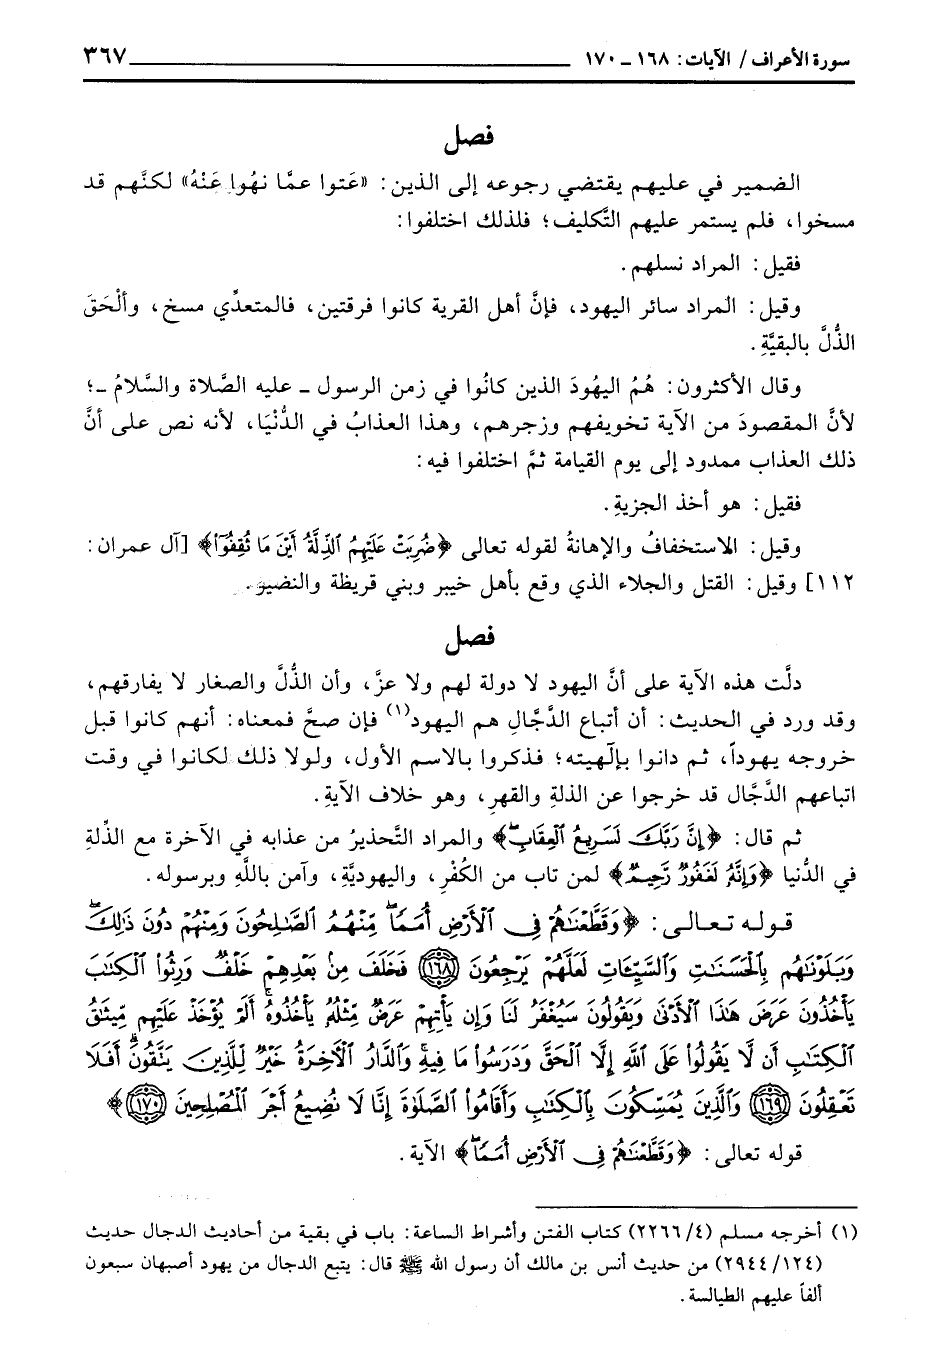 سورة الأعراف / الآيات: ١٦٨ ـ ١٧٠ ٣٦٧
فصل
الضمير في عليهم يقتضي رجوعه إلى الذين: «عَتوا عمَّا نهُوا عَنْهُ» لكنَّهم قد
مسخوا، فلم يستمر عليهم التَّكليف؛ فلذلك اختلفوا:
فقيل: المراد نسلهم.
وقيل: المراد سائر اليهود، فإنَّ أهل القرية كانوا فرقتين، فالمتعدِّي مسخ، وألْحَقَ
الذُّلَّ بالبقيَّةِ.
وقال الأكثرون: هُمُ اليهُودَ الذين كانُوا في زمن الرسول ـ عليه الصَّلاة والسَّلامُ ـ؛
لأنَّ المقصودَ من الآية تخويفهم وزجرهم، وهذا العذابُ في الدُّنْيَا، لأنه نص على أنَّ
ذلك العذاب ممدود إلى يوم القيامة ثمَّ اختلفوا فيه:
فقيل: هو أخذ الجزيةِ.
وقيل: الاستخفافُ والإهانةُ لقوله تعالى ﴿ضُرِبَتْ عَلَيْهِمُ ٱلذِّلَّةُ أَيْنَ مَا ثُقِفُوٓا۟﴾ [آل عمران:
١١٢] وقيل: القتل والجلاء الذي وقع بأهل خيبر وبني قريظة والنضير.
فصل
دلَّت هذه الآية على أنَّ اليهود لا دولة لهم ولا عزَّ، وأن الذُّلَّ والصغار لا يفارقهم،
وقد ورد في الحديث: أن أتباع الدَّجَّالِ هم اليهود(١) فإن صحَّ فمعناه: أنهم كانوا قبل
خروجه يهوداً، ثم دانوا بإلَهيته؛ فذكروا بالاسم الأول، ولولا ذلك لكانوا في وقت
اتباعهم الدَّجَّال قد خرجوا عن الذلةِ والقهرِ، وهو خلاف الآيةِ.
ثم قال: ﴿إِنَّ رَبَّكَ لَسَرِيعُ ٱلْعِقَابِ﴾ والمراد التَّحذيرُ من عذابه في الآخرة مع الذِّلةِ
في الدُّنيا ﴿وَإِنَّهُۥ لَغَفُورٌ رَّحِيمٌ﴾ لمن تاب من الكُفْرِ، واليهوديَّةِ، وآمن باللَّهِ وبرسوله.
قوله تعالى: ﴿وَقَطَّعْنَٰهُمْ فِى ٱلْأَرْضِ أُمَمًا ۖ مِّنْهُمُ ٱلصَّٰلِحُونَ وَمِنْهُمْ دُونَ ذَٰلِكَ ۖ
وَبَلَوْنَٰهُم بِٱلْحَسَنَٰتِ وَٱلسَّيِّـَٔاتِ لَعَلَّهُمْ يَرْجِعُونَ ١٦٨ فَخَلَفَ مِنۢ بَعْدِهِمْ خَلْفٌ وَرِثُوا۟ ٱلْكِتَٰبَ
يَأْخُذُونَ عَرَضَ هَٰذَا ٱلْأَدْنَىٰ وَيَقُولُونَ سَيُغْفَرُ لَنَا وَإِن يَأْتِهِمْ عَرَضٌ مِّثْلُهُۥ يَأْخُذُوهُ ۚ أَلَمْ يُؤْخَذْ عَلَيْهِم مِّيثَٰقُ
ٱلْكِتَٰبِ أَن لَّا يَقُولُوا۟ عَلَى ٱللَّهِ إِلَّا ٱلْحَقَّ وَدَرَسُوا۟ مَا فِيهِ ۗ وَٱلدَّارُ ٱلْـَٔاخِرَةُ خَيْرٌ لِّلَّذِينَ يَتَّقُونَ ۗ أَفَلَا
تَعْقِلُونَ ١٦٩ وَٱلَّذِينَ يُمَسِّكُونَ بِٱلْكِتَٰبِ وَأَقَامُوا۟ ٱلصَّلَوٰةَ إِنَّا لَا نُضِيعُ أَجْرَ ٱلْمُصْلِحِينَ ١٧٠﴾
قوله تعالى: ﴿وَقَطَّعْنَٰهُمْ فِى ٱلْأَرْضِ أُمَمًا ۖ﴾ الآية.
(١) أخرجه مسلم (٤/ ٢٢٦٦) كتاب الفتن وأشراط الساعة: باب في بقية من أحاديث الدجال حديث
(١٢٤/ ٢٩٤٤) من حديث أنس بن مالك أن رسول الله ﷺ قال: يتبع الدجال من يهود أصبهان سبعون
ألفاً عليهم الطيالسة.